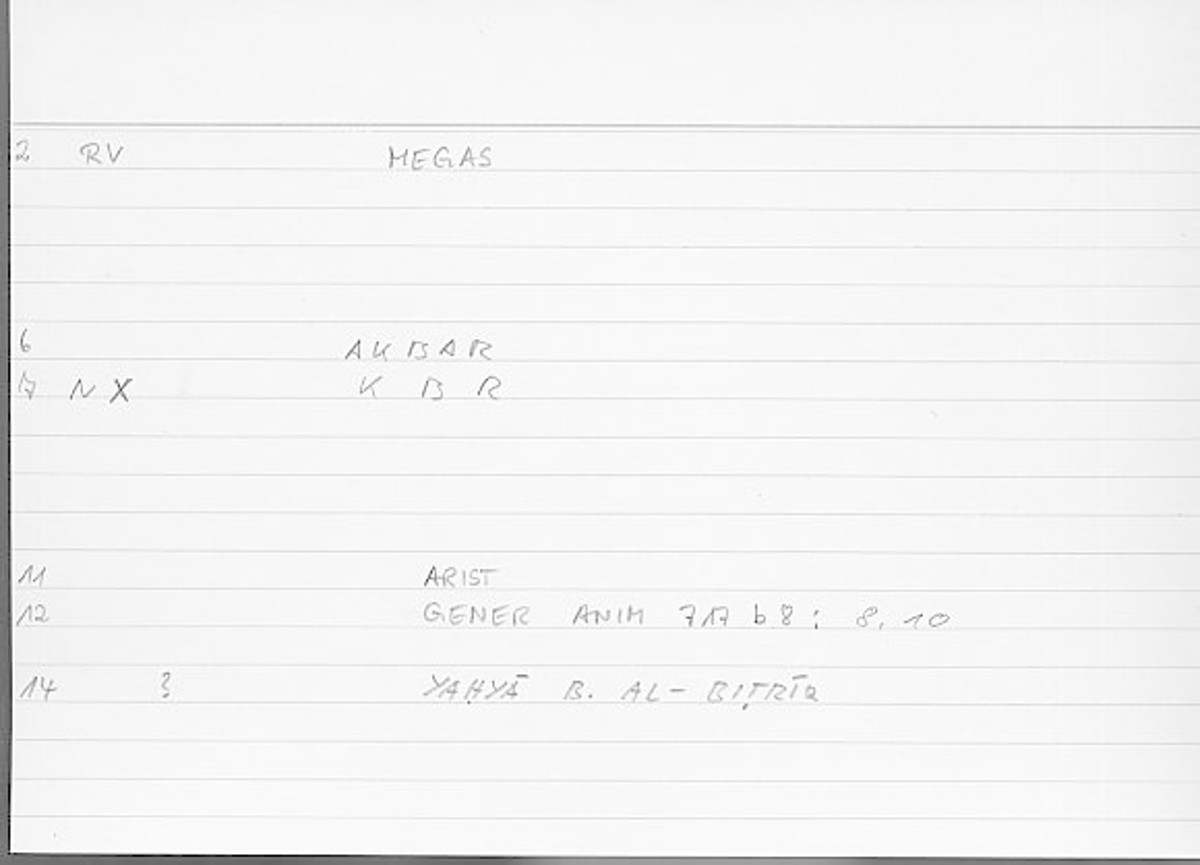 2 RV MEGAS
6 AKBAR
7 N X K B R
11 ARIST
12 GENER ANIM 717 b 8 : 8, 10
14 YAḤYĀ B. AL-BIṬRĪQ